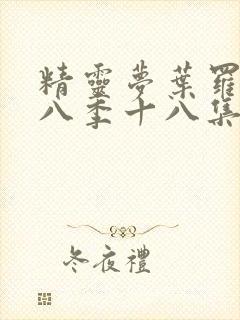 精靈夢葉羅
八季十八集
冬夜禮